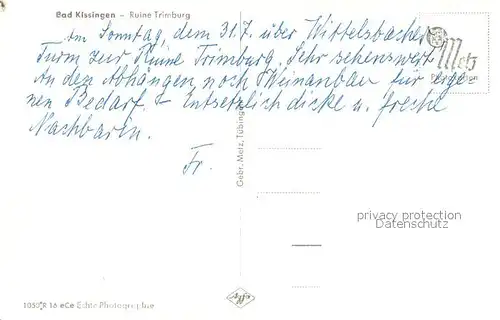 Bad Kissingen – Ruine Trimburg
am Sonntag, dem 31.7. über Wittelsbacher
Turm zur Ruine Trimburg. Sehr sehenswert
An den Abhängen noch Weinanbau für eige-
nen Bedarf. Entsetzlich dicke u. freche
Nachbaren.
Fr.
Metz
Gebr. Metz, Tübingen
privacy protection
watermark
1050 R 16 eCe Echte Photographie
Agfa